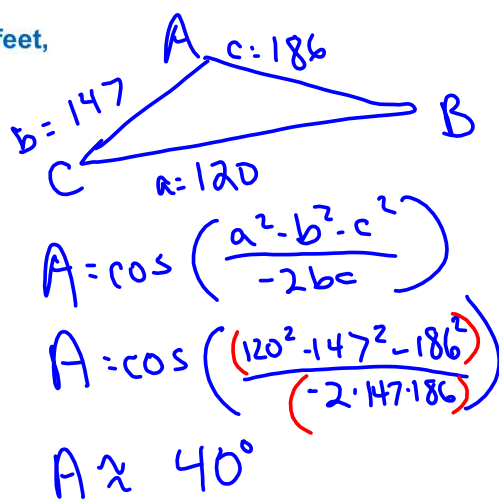 feet,
A c=186
b=147
B
C a=120
A=cos((a²-b²-c²)/(-2bc))
A=cos((120²-147²-186²)/(-2·147·186))
A≈40°